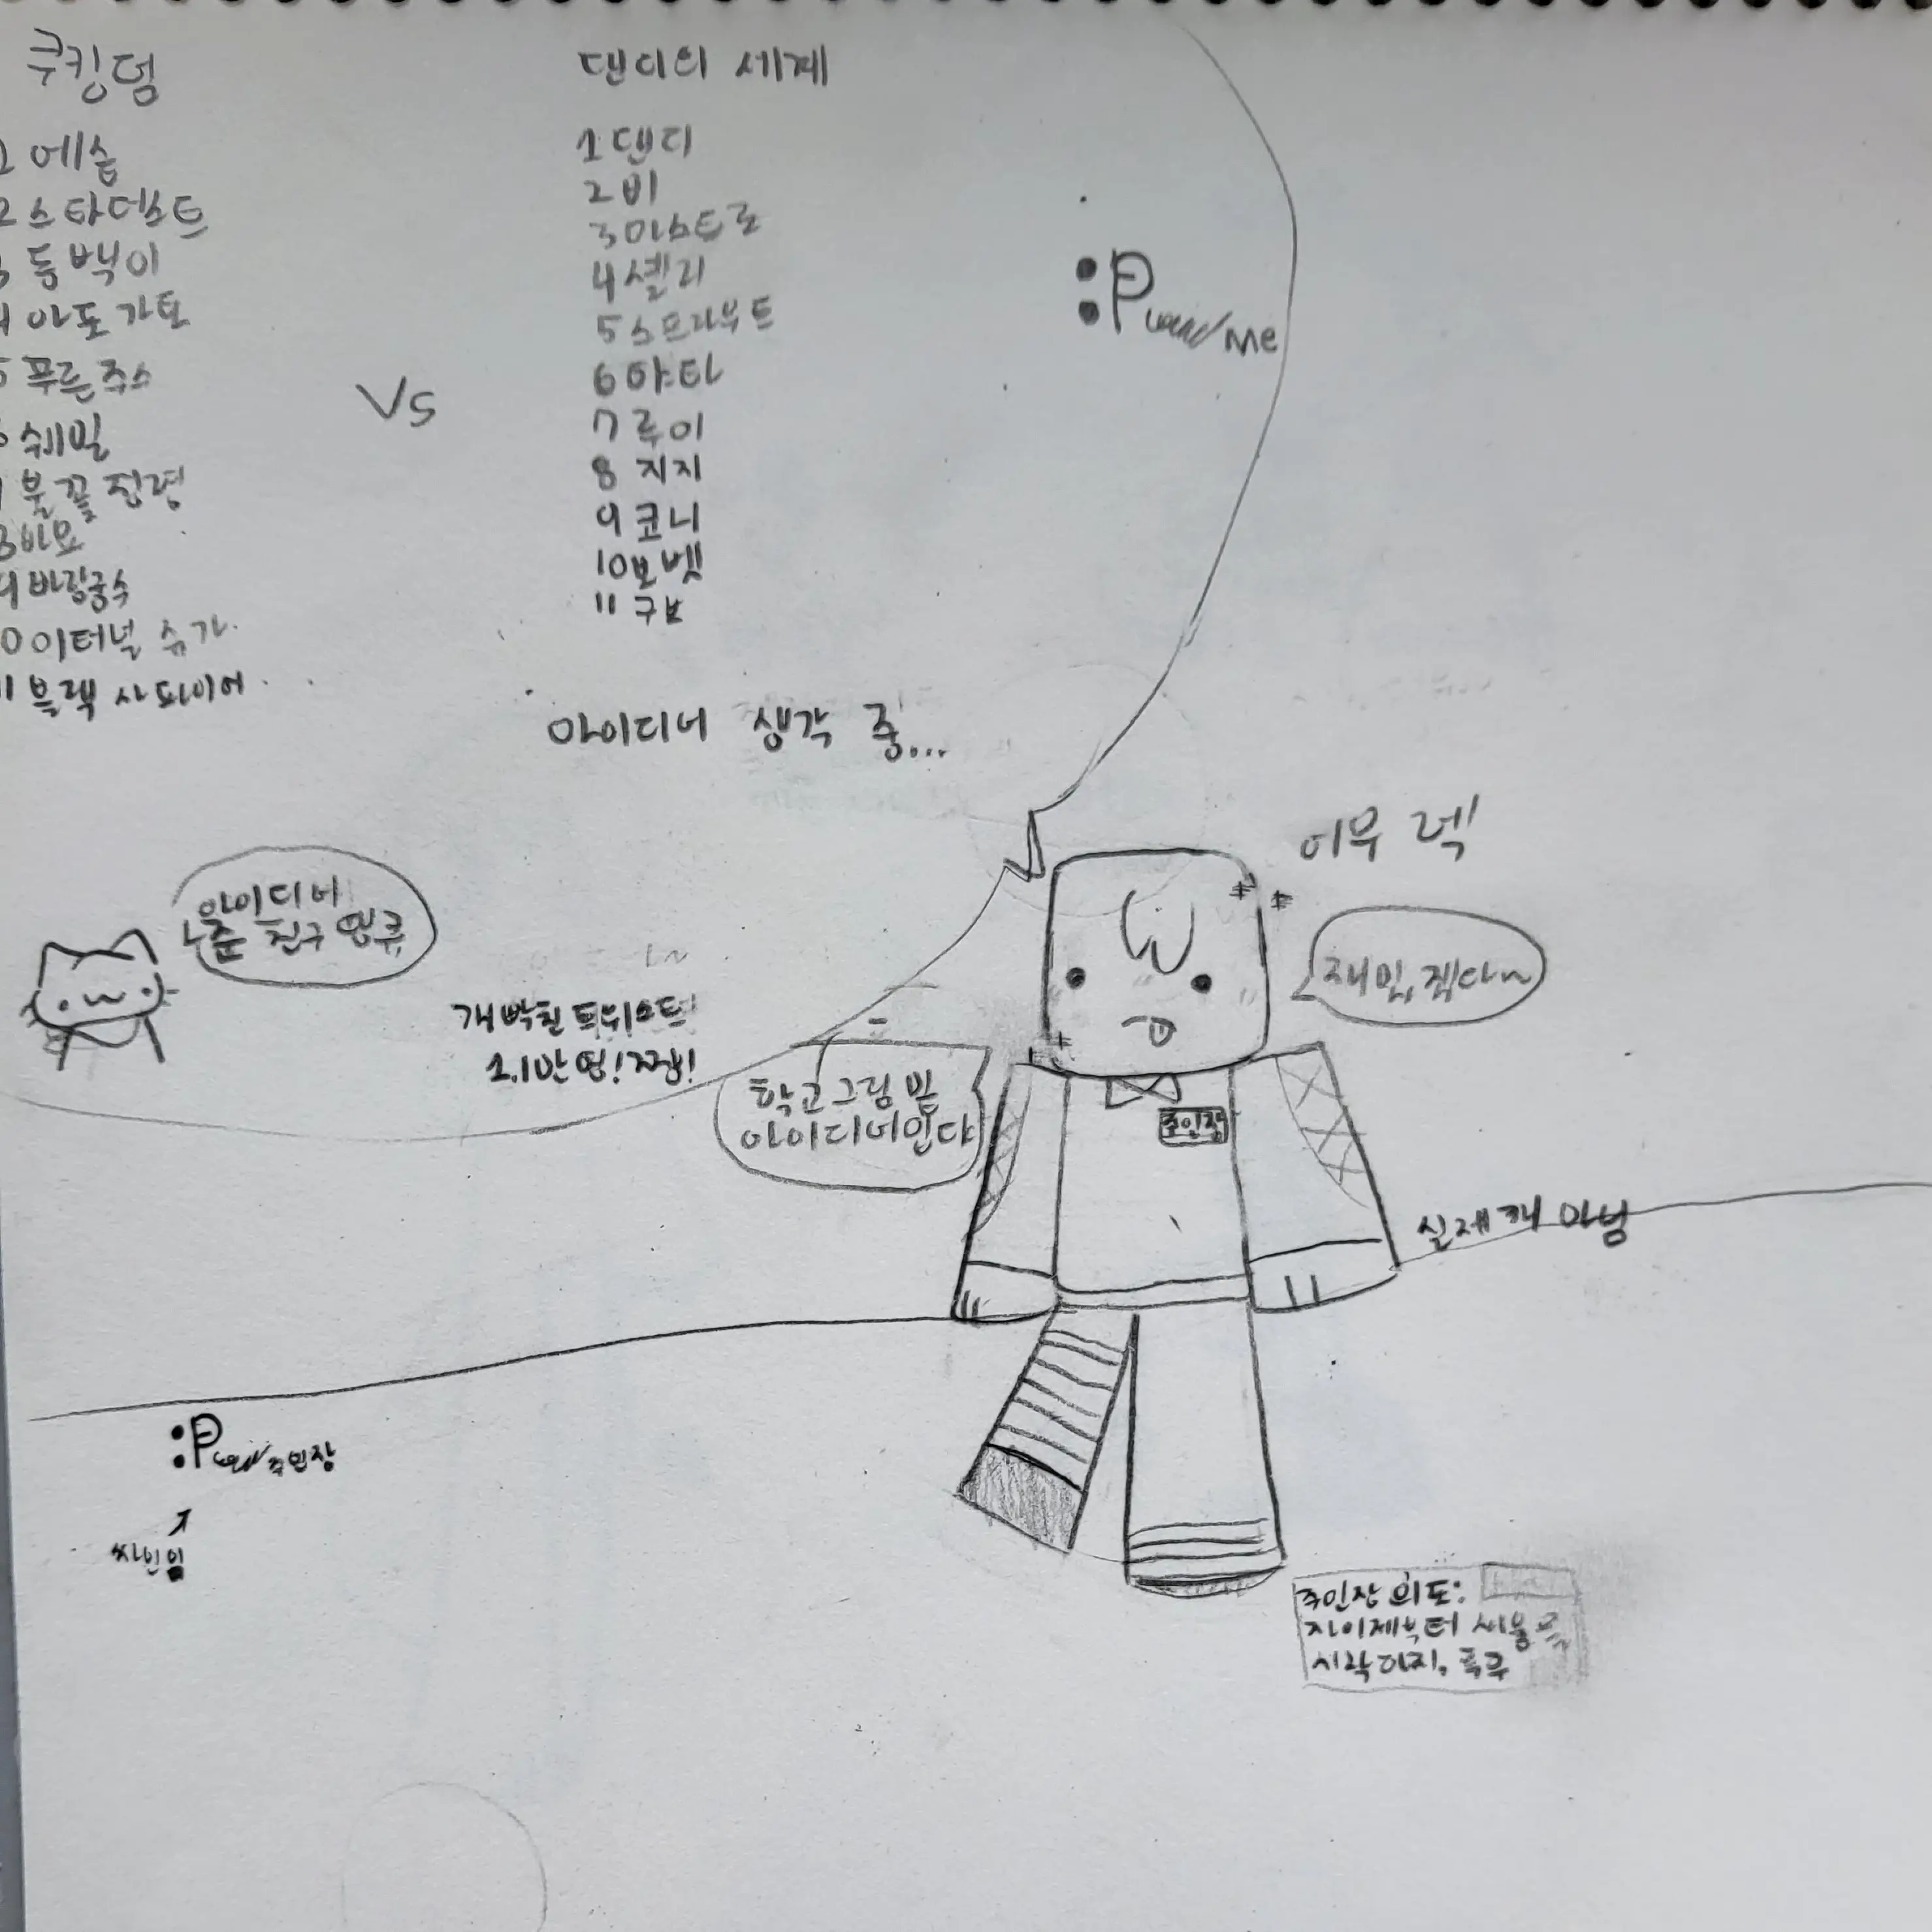 쿠킹덤
1 에슾
2 스타더스트
3 동백이
4 아포가토
5 푸른주스
6 쉐밀
7 불꽃정령
8 바요
9 바람궁수
10 이터널 슈가
11 블랙 사파이어
Vs
댄디의 세계
1 댄디
2 비
3 아스트로
4 셸리
5 스프라우트
6 야타
7 루이
8 지지
9 코니
10 보넷
11 구보
:P Me
아이디어 생각 중...
어우 렉!
아이디어
준 친구 땡큐
개박친 트위스트!
1.1만 명! 짱!
재밌겠다~
학교 그림 및
아이디어입니다
주인장
실제 개 아님
:P 주인장
싸인임
주인장 의도:
자 이제부터 싸움을
시작하지. 폭주